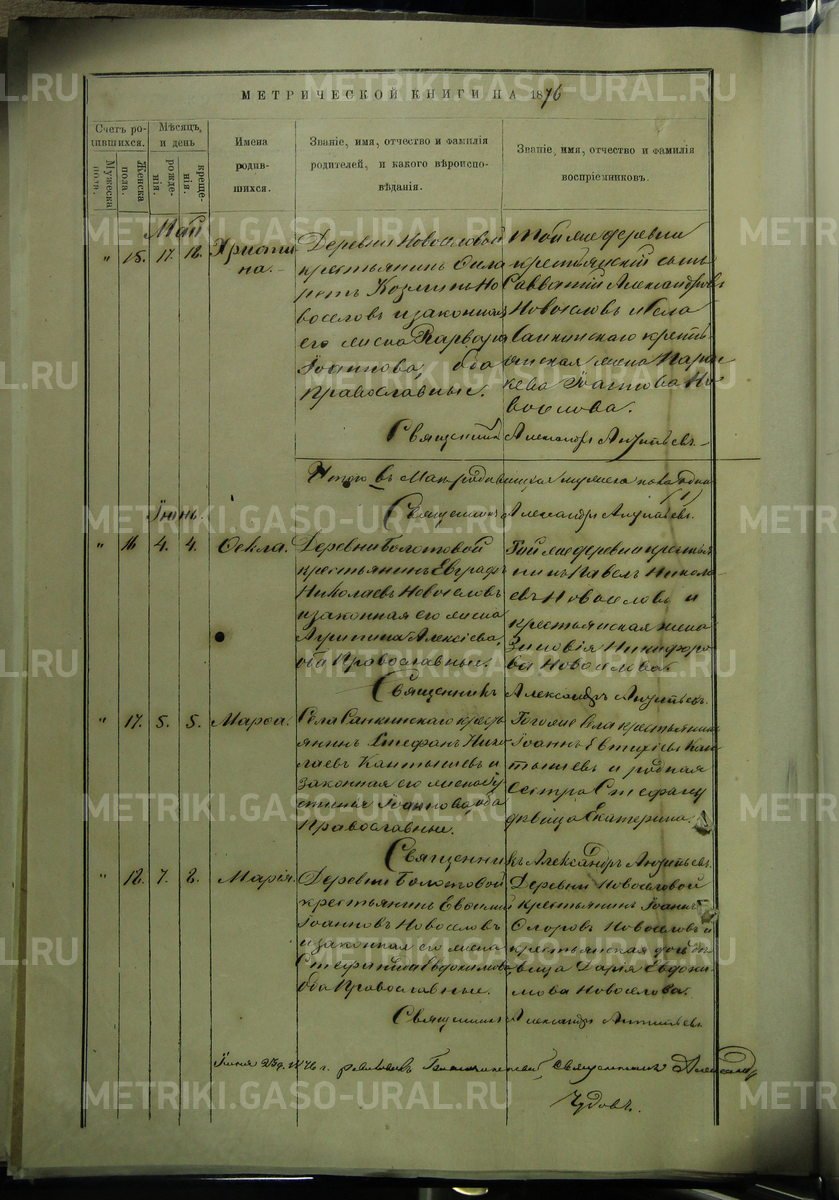 МЕТРИЧЕСКОЙ КНИГИ НА 1876
Счетъ ро-
дившихся.
Мужеска
пола.
Женска
пола.
Мѣсяцъ,
и день
рожде-
нія.
креще-
нія.
Имена
родив-
шихся.
Званіе, имя, отчество и фамилія
родителей, и какого вѣроиспо-
вѣданія.
Званіе, имя, отчество и фамилія
воспріемниковъ.
Май
" 15. 17. 18.
Христи
на.
Деревни Новоселовой
крестьянинъ Сила
Козминъ Но
воселовъ и законная
его жена Варвара
Іоаннова, оба
Православные.
Той же деревни
крестьянскій сынъ
Савватій Александровъ
Новоселовъ и села
Санкинскаго кресть
янская жена Парас
кева Іоаннова Но
воселова.
Священникъ Александръ
Итого въ Маѣ родившихся женска пола одна
(1)
Священникъ Александръ
Іюнь.
" 16 4. 4.
Ѳекла.
Деревни Болотовой
крестьянинъ Евграфъ
Николаевъ Новоселовъ
и законная его жена
Агрипина Алексіева,
оба Православные.
Той же деревни кресть
янинъ Павелъ Никола
евъ Новоселовъ и
крестьянская жена
Зиновія Никифоро
ва Новоселова.
Священникъ Александръ
" 17. 5. 5.
Марѳа.
Села Санкинскаго кресть
янинъ Стефанъ Нико
лаевъ Кантышевъ и
законная его жена Іу
стинья Іоаннова, оба
Православные.
Того же Села крестьянинъ
Іоаннъ Евтихіевъ Кан
тышевъ и родная
сестра Стефану
дѣвица Екатерина.
Священникъ Александръ
" 18. 7. 8.
Марія.
Деревни Болотовой
крестьянинъ Евѳимій
Іоанновъ Новоселовъ
и законная его жена
Стефанида Евдокимова,
оба Православные.
Деревни Новоселовой
крестьянинъ Іоаннъ
Новоселовъ и
крестьянская дочь дѣ
вица Дарія Евдоки
мова Новоселова.
Священникъ Александръ
Іюня 1876 г. Священникъ Александръ
Чудовъ.
METRIKI.GASO-URAL.RU